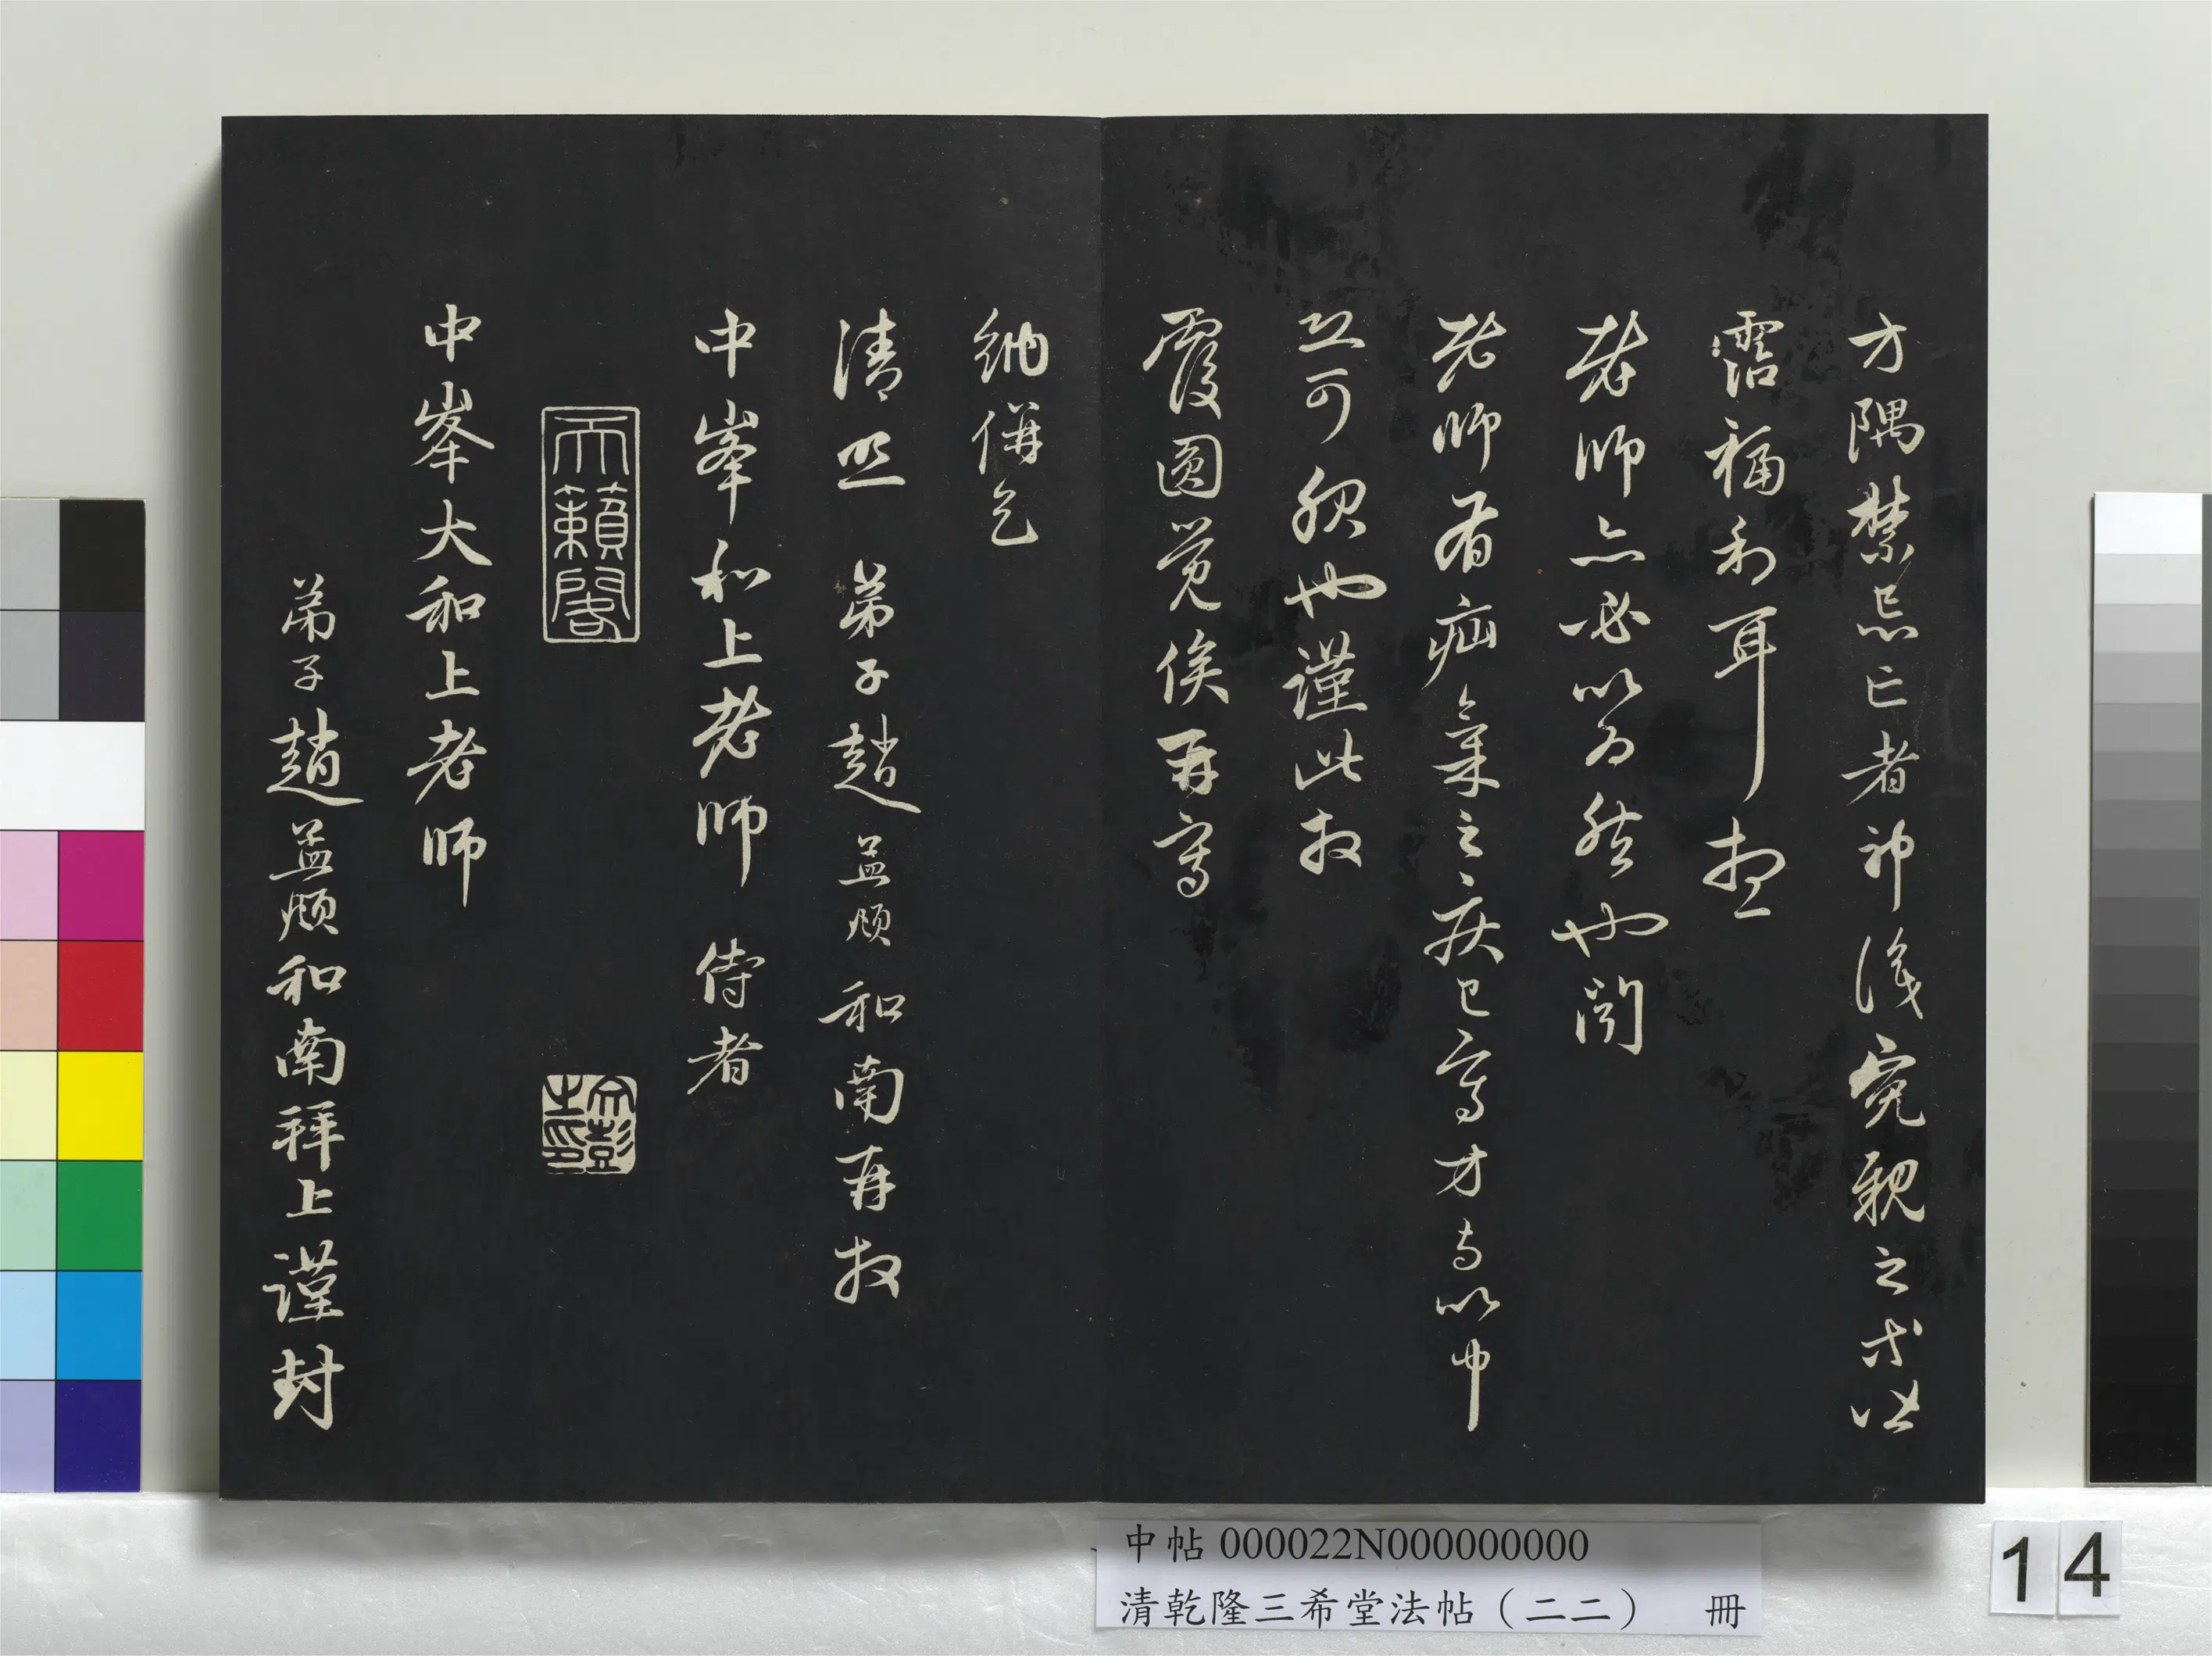 方隅禁忌亡者神識冤親之等皆
霑福利耳想
老師亦必以為然也聞
老師有疝氣之疾已寫方與以中
並可服也謹此拜
覆圓覺俟再寫
納併乞
清照 弟子趙孟頫和南再拜
中峯和上老師 侍者
天籟閣
文彭之印
中峯大和上老師
弟子趙孟頫和南拜上謹封
中帖 000022N000000000
清乾隆三希堂法帖（二二） 冊
14